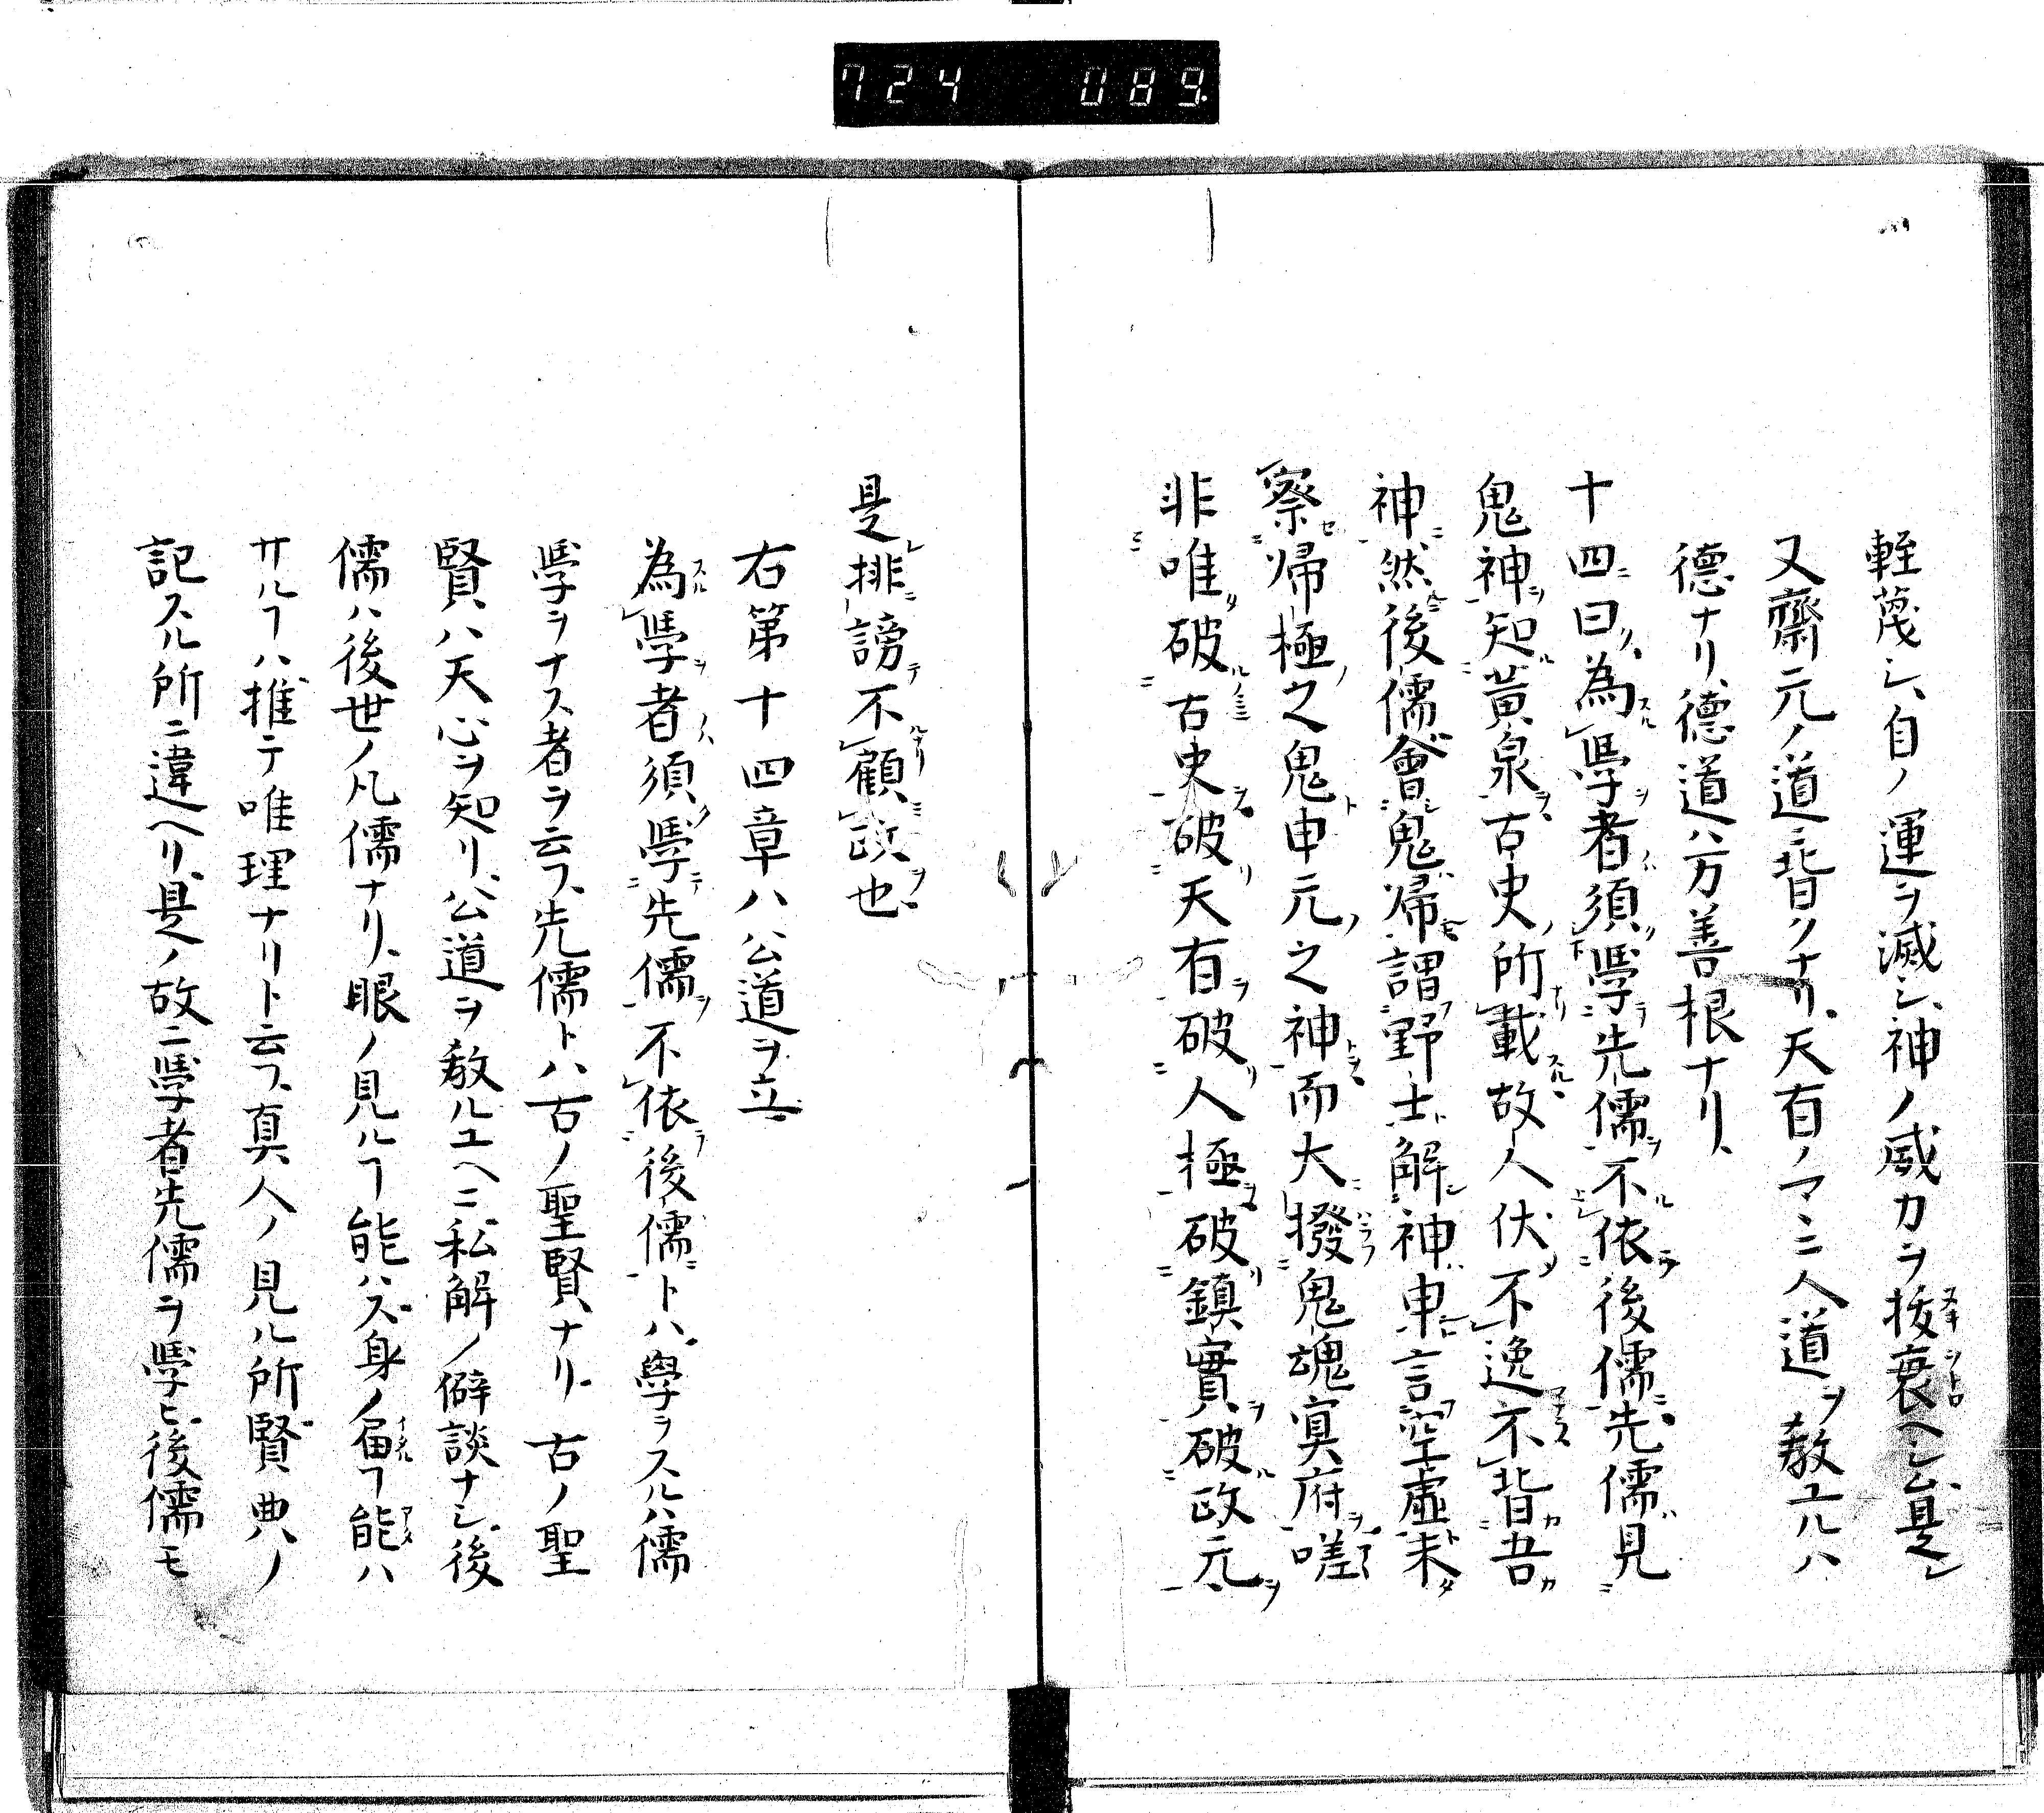 724 089.
軽蔑シ、自ノ運ヲ滅シ、神ノ威カヲ抜衰ヘシム、是レ
又齋元ノ道ニ背クナリ、天有ノマニ人道ヲ教ユルハ
德ナリ、德道ハ万善根ナリ、
十四曰為學者須學先儒不依後儒先儒見
鬼神知黄泉古史所載故人伏不逸不背吾
神然後儒會鬼帰謂野士解神申言空虚未
察帰極之鬼申元之神而大撥鬼魂冥府嗟
非唯破古史破天有破人極破鎮實破政元
是排謗不顧政也
右第十四章ハ公道ヲ立
為學者須學先儒不依後儒トハ學ヲスルハ儒
學ヲナス者ヲ云フ、先儒トハ古ノ聖賢ナリ、古ノ聖
賢ハ天心ヲ知リ、公道ヲ教ルユヘニ私解ノ僻談ナシ、後
儒ハ後世ノ凡儒ナリ、眼ノ見ルヿ能ハズ、身ノ届ヿ能ハ
サルヿハ推テ唯理ナリト云フ、真人ノ見ル所賢典ノ
記スル所ニ違ヘリ、是ノ故ニ學者先儒ヲ學ヒ、後儒モ